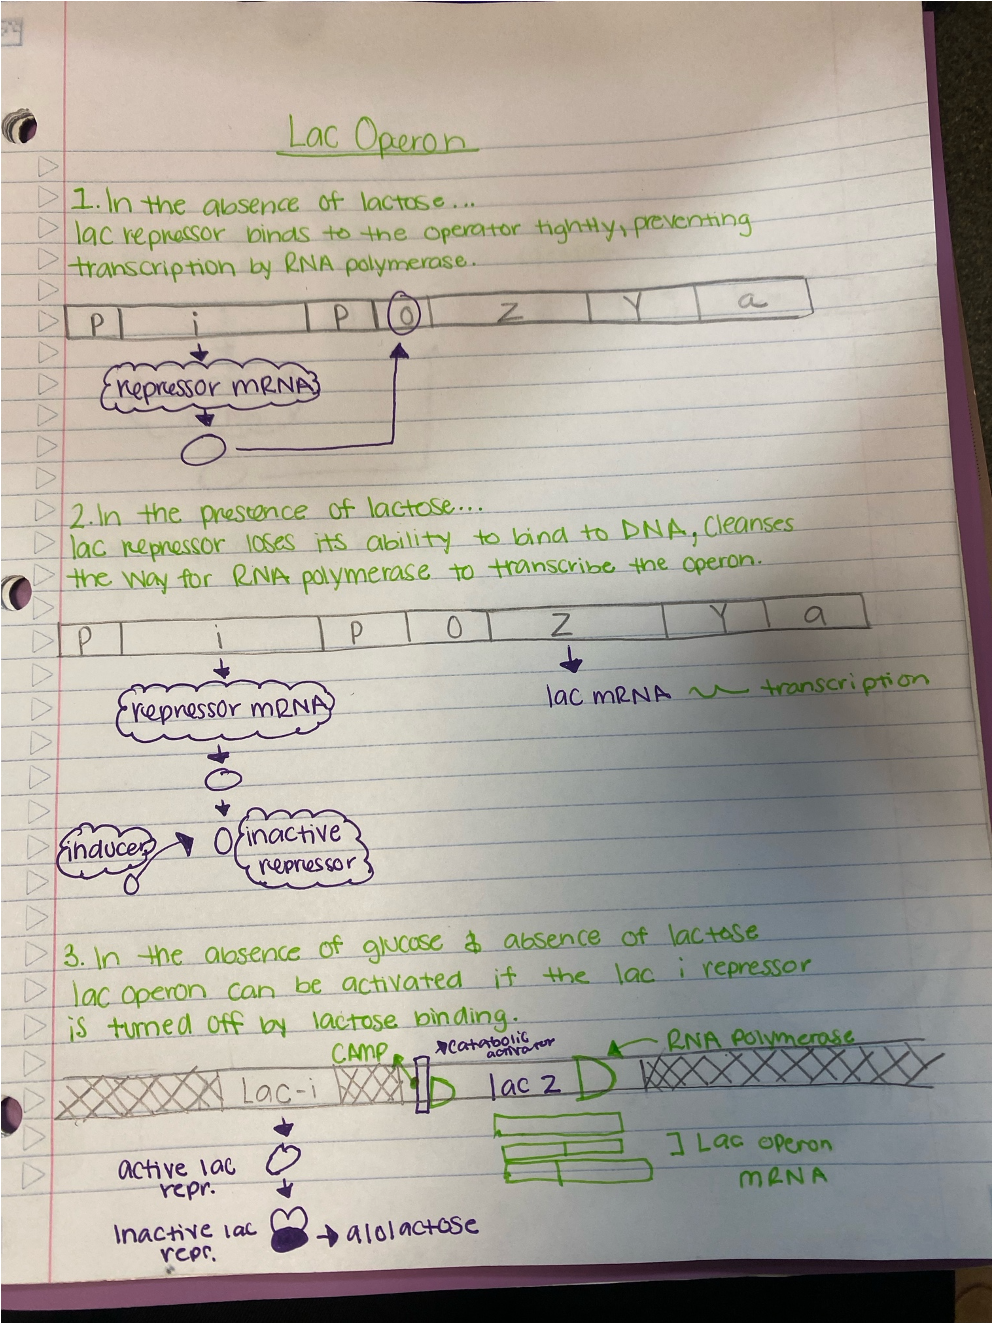 Lac Operon
1. In the absence of lactose...
lac repressor binds to the operator tightly, preventing
transcription by RNA polymerase.
P i P O Z Y a
repressor mRNA
2. In the prestence of lactose...
lac repressor loses its ability to bind to DNA, Cleanses
the way for RNA polymerase to transcribe the operon.
P i P O Z Y a
lac mRNA transcription
repressor mRNA
inducer inactive
repressor
3. In the absence of glucose & absence of lactose
lac operon can be activated if the lac i repressor
is turned off by lactose binding.
CAMP catabolic
activator
RNA polymerase
Lac-i lac z
Lac operon
mRNA
active lac
repr.
Inactive lac
repr.
alolactose